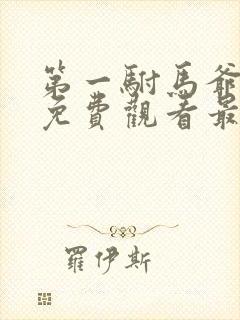 第一駙馬爺
免費觀看最
羅伊斯